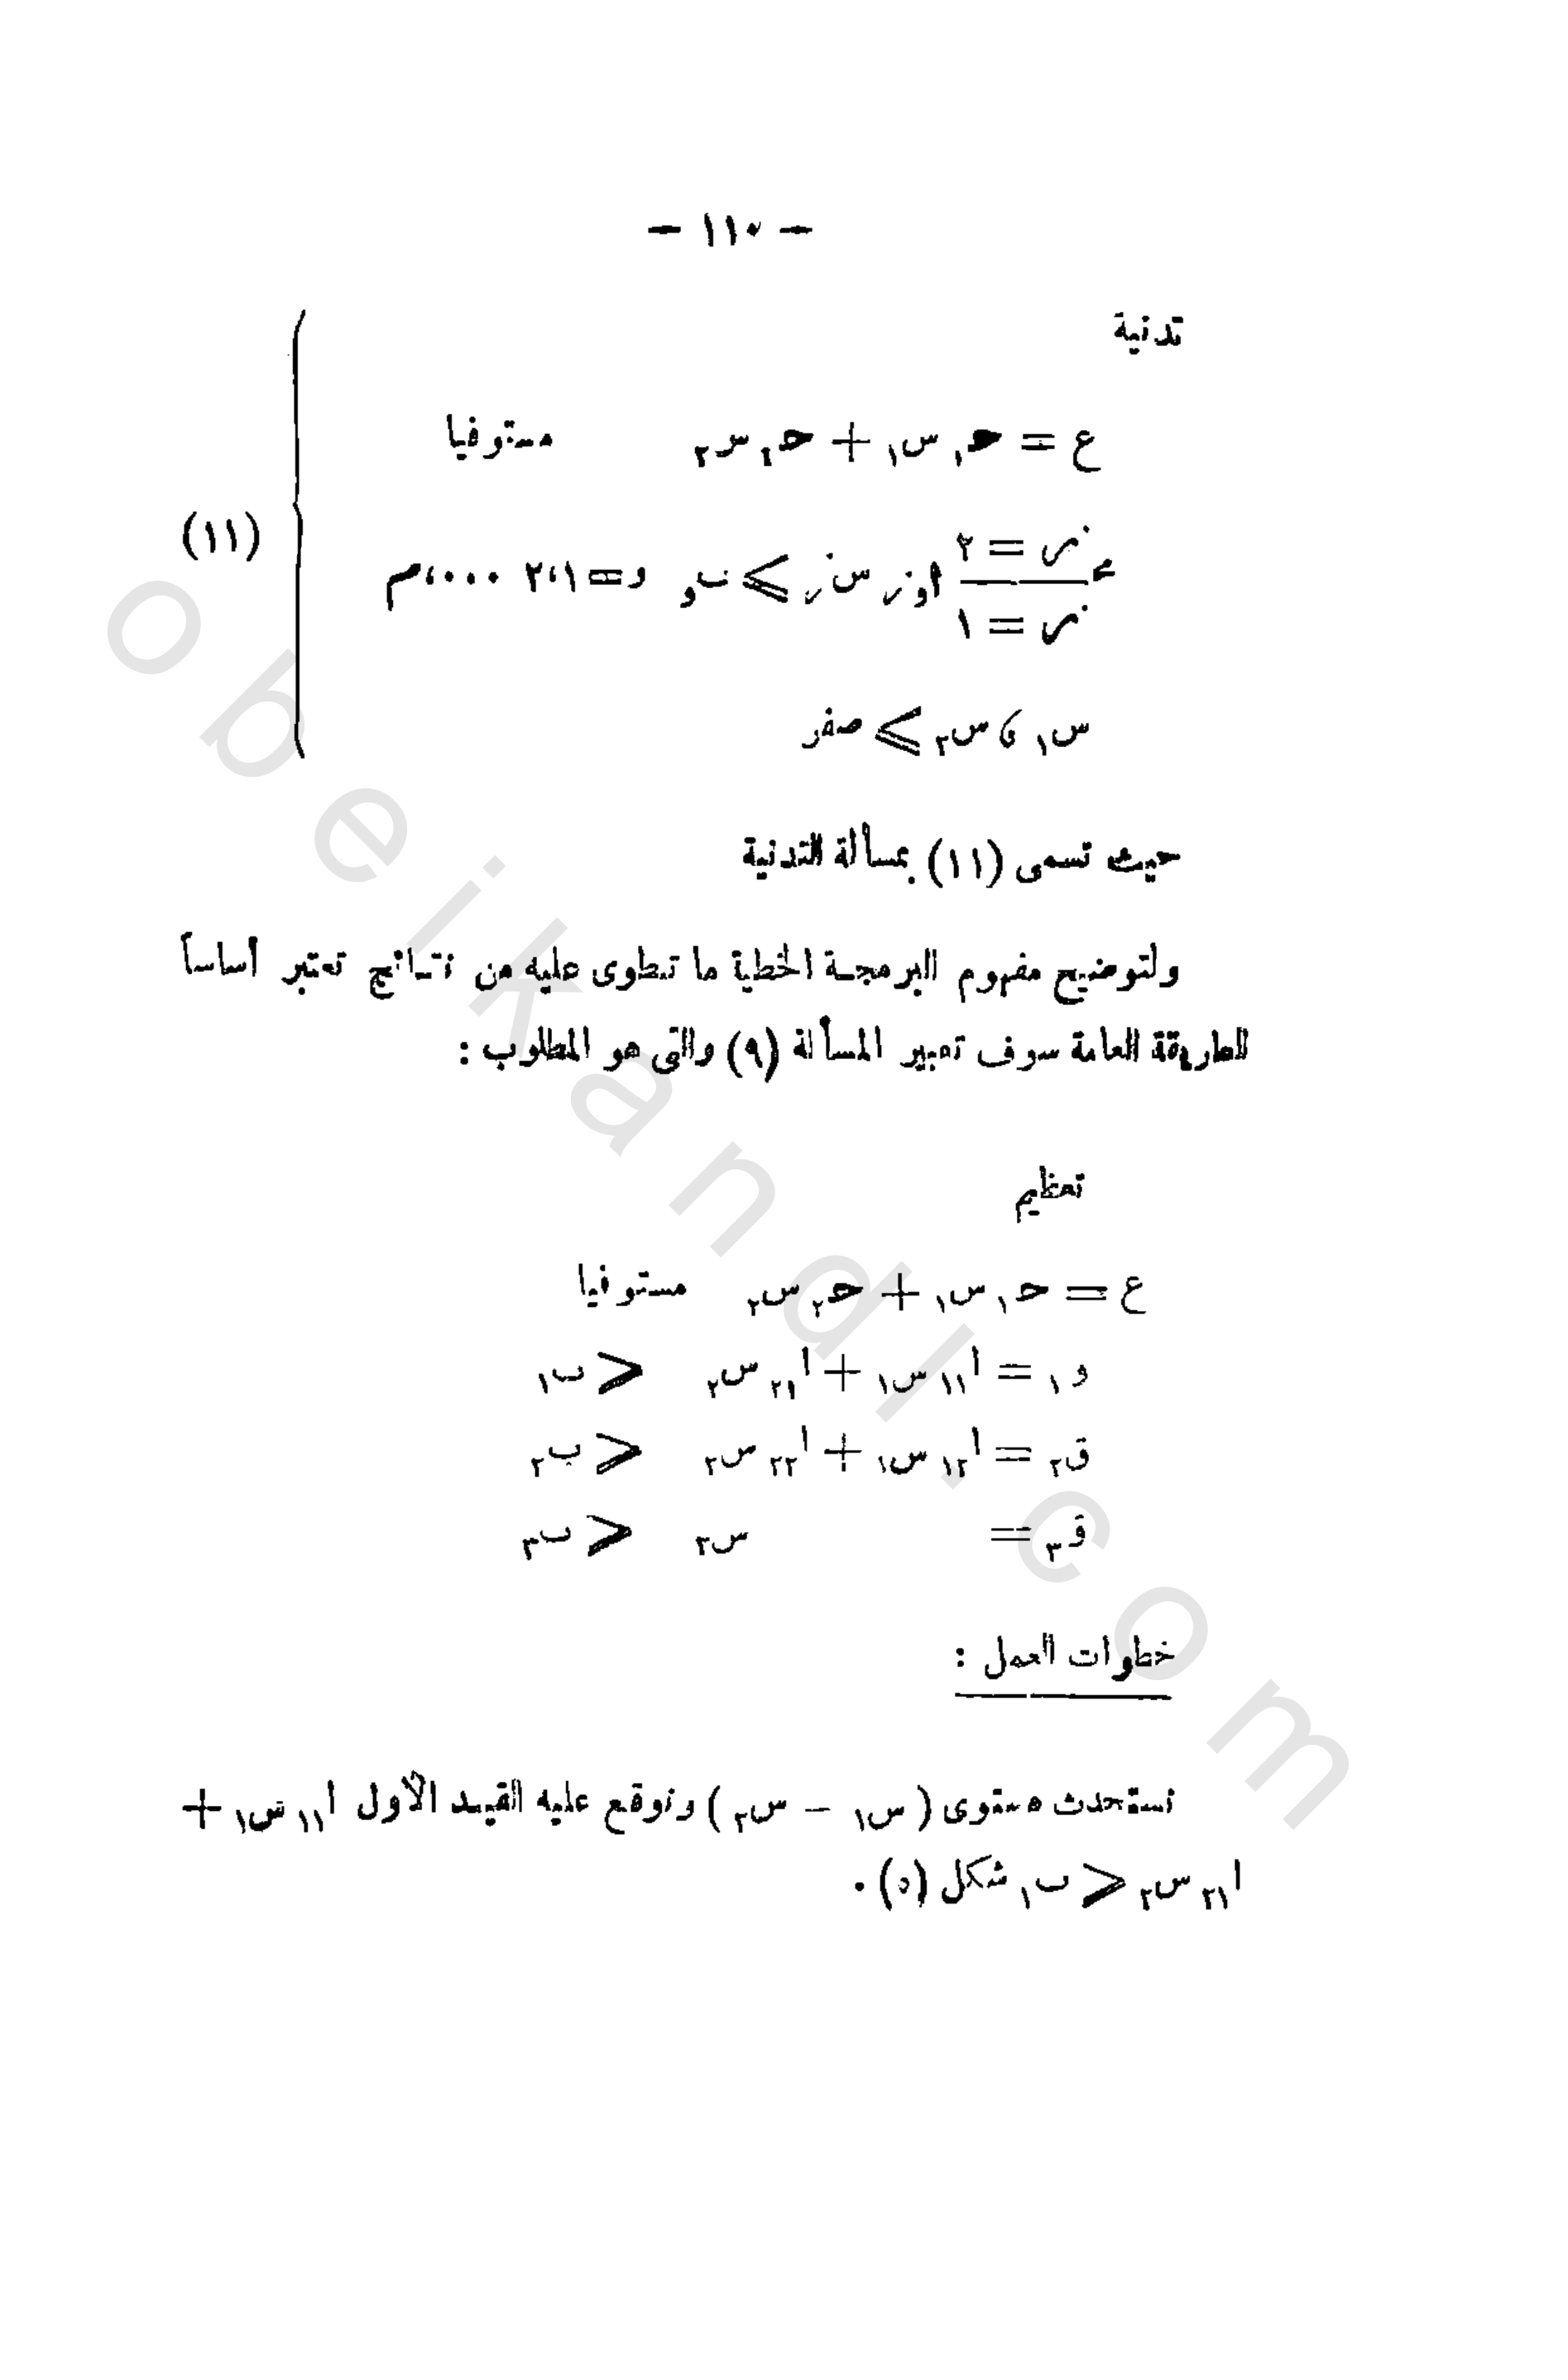 — ١١٠ —
تدنية
ع = حـ١ س١ + حـ٢ س٢ مستوفيا
مجـ ر = ١ ← ر = ٢ أ و ر س ر ⩾ ب و و = ١،٢ ٠٠٠،م
س١ ، س٢ ⩾ صفر
(١١)
حيث تسمى (١١) بمسألة التدنية
ولتوضيح مفهوم البرمجة الخطية ما تنطوى عليه من نتائج تعتبر أساساً
للطريقة العامة سوف تعبير المسألة (٩) والتى هو المطلوب :
تعظيم
ع = حـ١ س١ + حـ٢ س٢ مستوفيا
و١ = ا١١ س١ + ا٢١ س٢ ⩽ ب١
ق٢ = ا١٢ س١ + ا٢٢ س٢ ⩽ ب٢
ق٣ = س٢ ⩽ ب٣
خطوات العمل :
نستحدث مستوى ( س١ – س٢ ) ونوقع عليه القيد الأول ا١١ س١ +
ا٢١ س٢ ⩽ ب١ شكل (٥) .
obeikandl.com